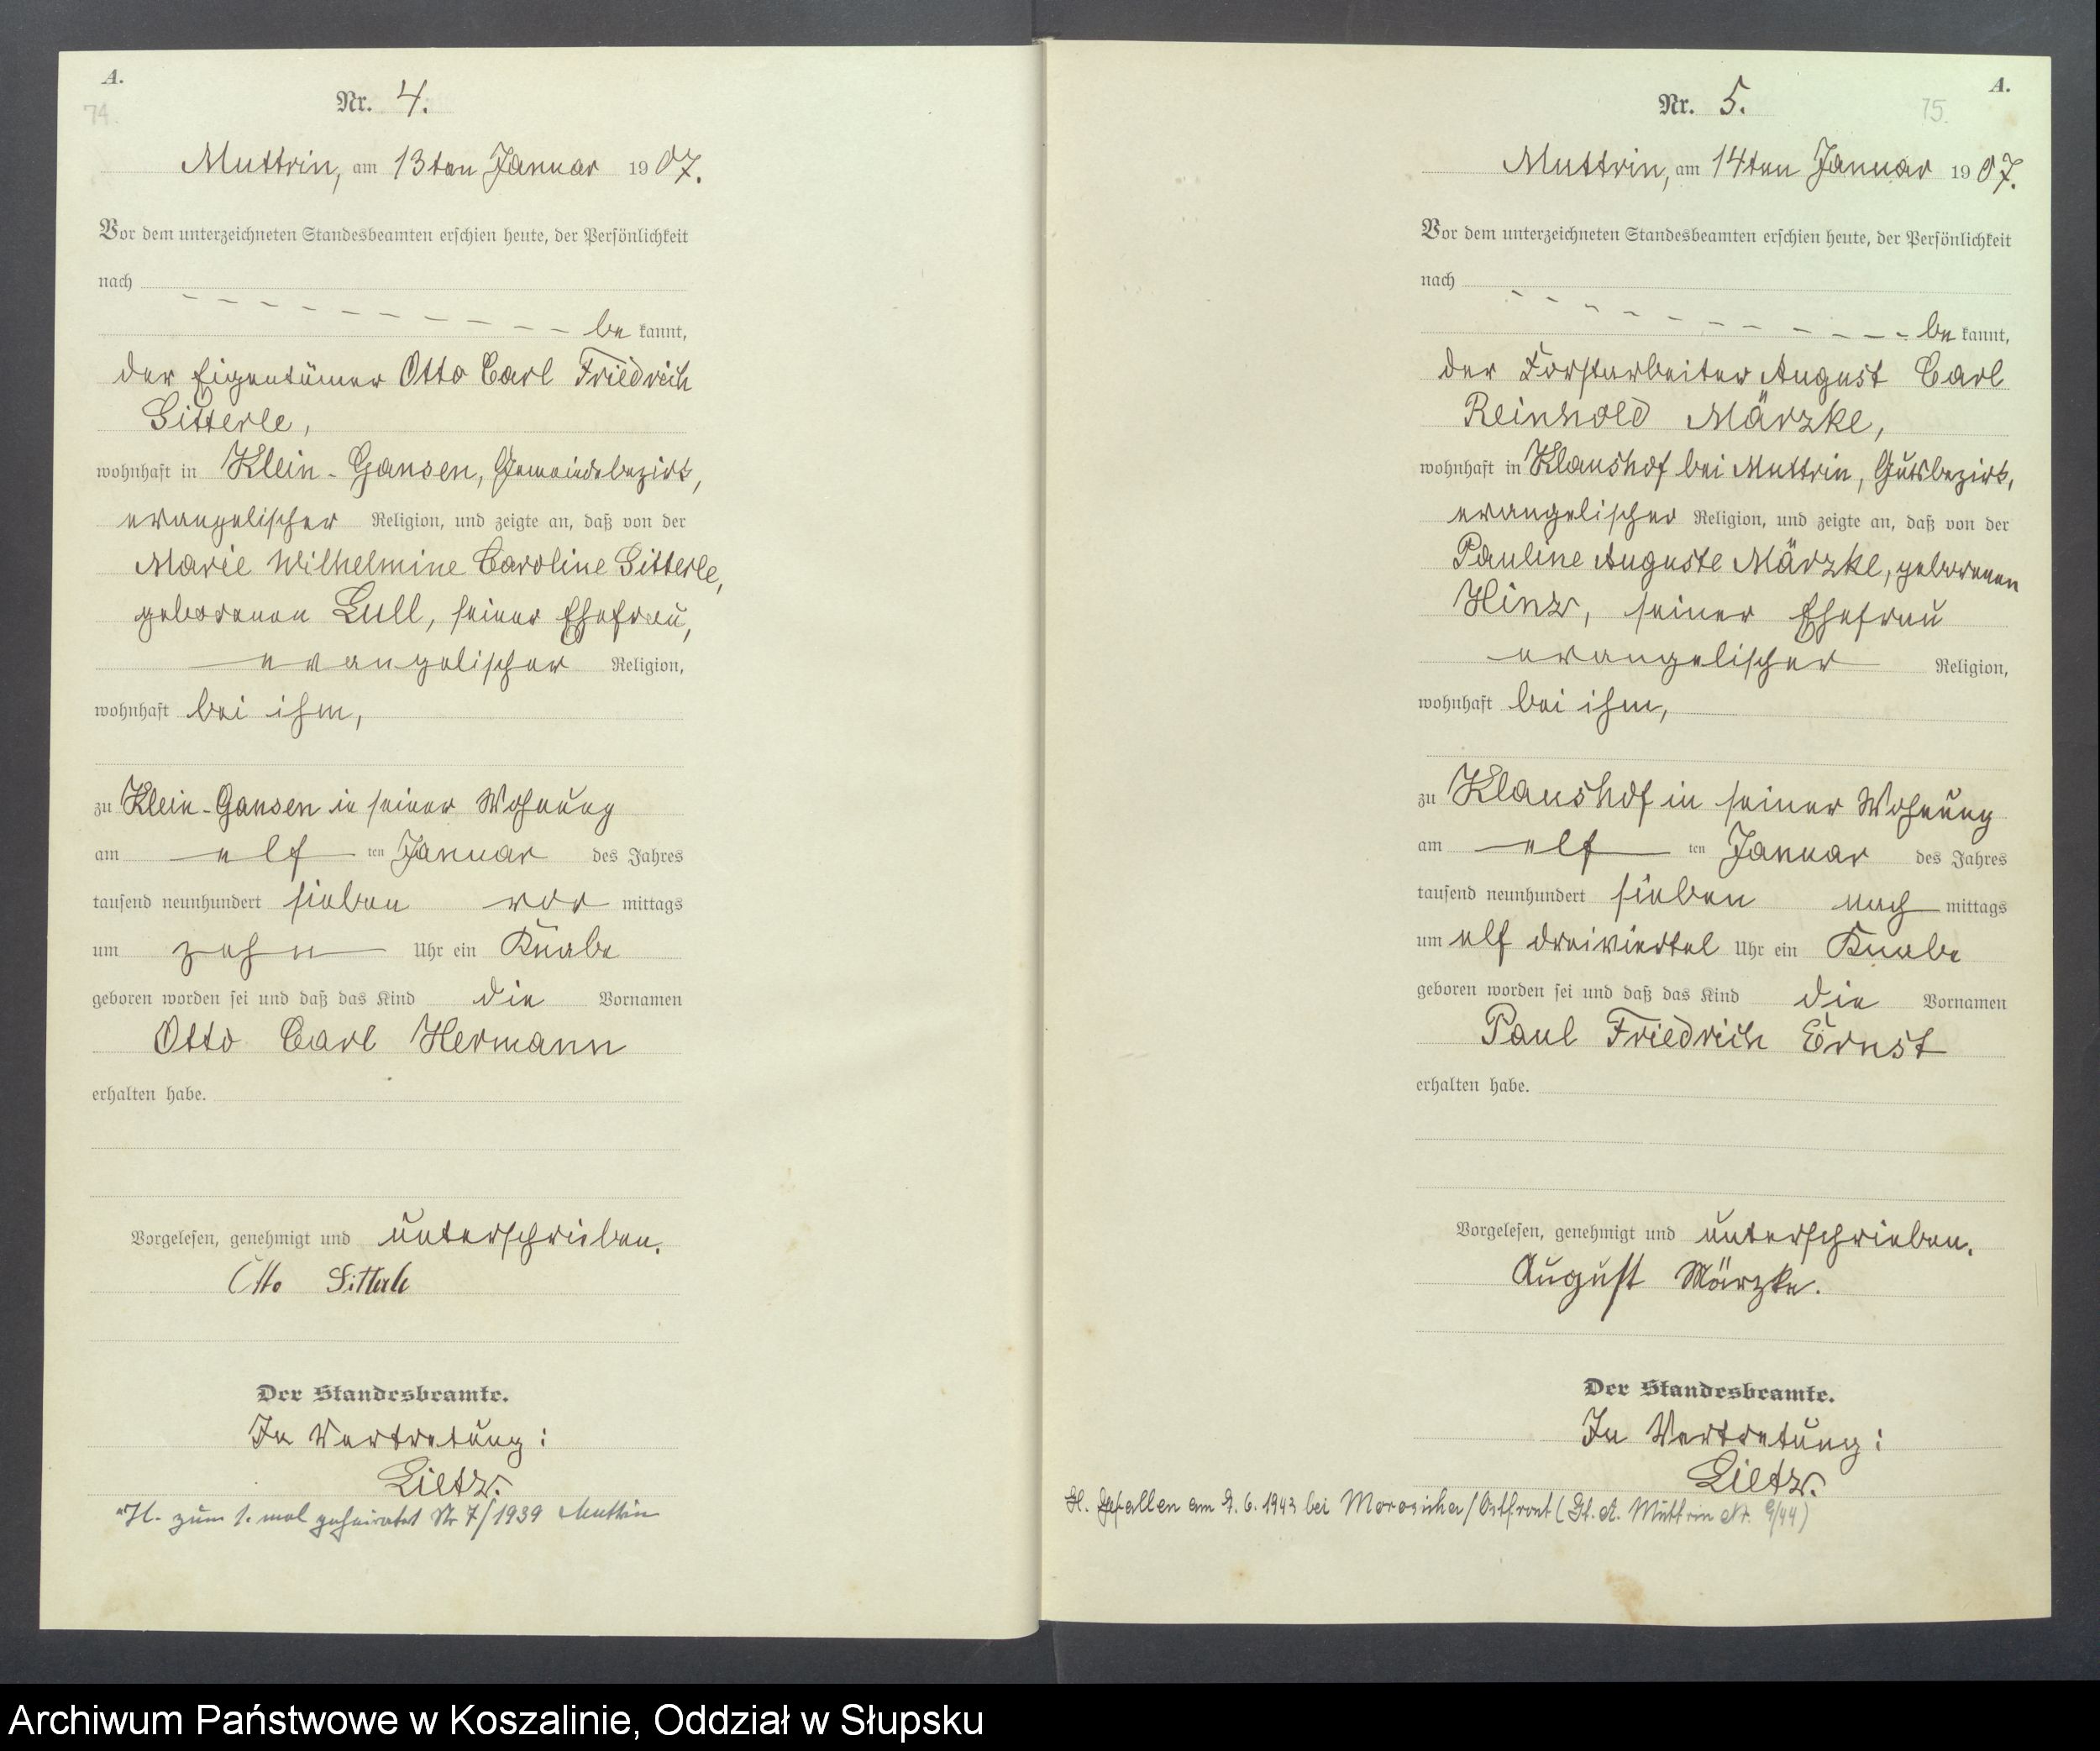 A.
74.
Nr. 4.
Muttrin, am 13ten Januar 1907.
Vor dem unterzeichneten Standesbeamten erschien heute, der Persönlichkeit
nach
be kannt,
der Eigentümer Otto Carl Friedrich
Sitterle,
wohnhaft in Klein-Gansen, Gemeindebezirk,
evangelischer Religion, und zeigte an, daß von der
Marie Wilhelmine Caroline Sitterle,
geborenen Lull, seiner Ehefrau,
evangelischer Religion,
wohnhaft bei ihm,
zu Klein-Gansen in seiner Wohnung
am elf ten Januar des Jahres
tausend neunhundert sieben vor mittags
um zehn Uhr ein Knabe
geboren worden sei und daß das Kind die Vornamen
Otto Carl Hermann
erhalten habe.
Vorgelesen, genehmigt und unterschrieben.
Otto Sitterle
Der Standesbeamte.
In Vertretung:
Lietz.
H. zum 1. mal geheiratet Nr 7/1939 Muttrin
A.
75.
Nr. 5.
Muttrin, am 14ten Januar 1907.
Vor dem unterzeichneten Standesbeamten erschien heute, der Persönlichkeit
nach
be kannt,
der Forstarbeiter August Carl
Reinhold Märzke,
wohnhaft in Klaushof bei Muttrin, Gutsbezirk,
evangelischer Religion, und zeigte an, daß von der
Pauline Auguste Märzke, geborenen
Hinz, seiner Ehefrau
evangelischer Religion,
wohnhaft bei ihm,
zu Klaushof in seiner Wohnung
am elf ten Januar des Jahres
tausend neunhundert sieben nach mittags
um elf dreiviertel Uhr ein Knabe
geboren worden sei und daß das Kind die Vornamen
Paul Friedrich Ernst
erhalten habe.
Vorgelesen, genehmigt und unterschrieben.
August Märzke.
Der Standesbeamte.
In Vertretung:
Lietz.
H. Gefallen am 9. 6. 1943 bei / Ostfront (St. A. Muttrin Nr. 9/44)
Archiwum Państwowe w Koszalinie, Oddział w Słupsku